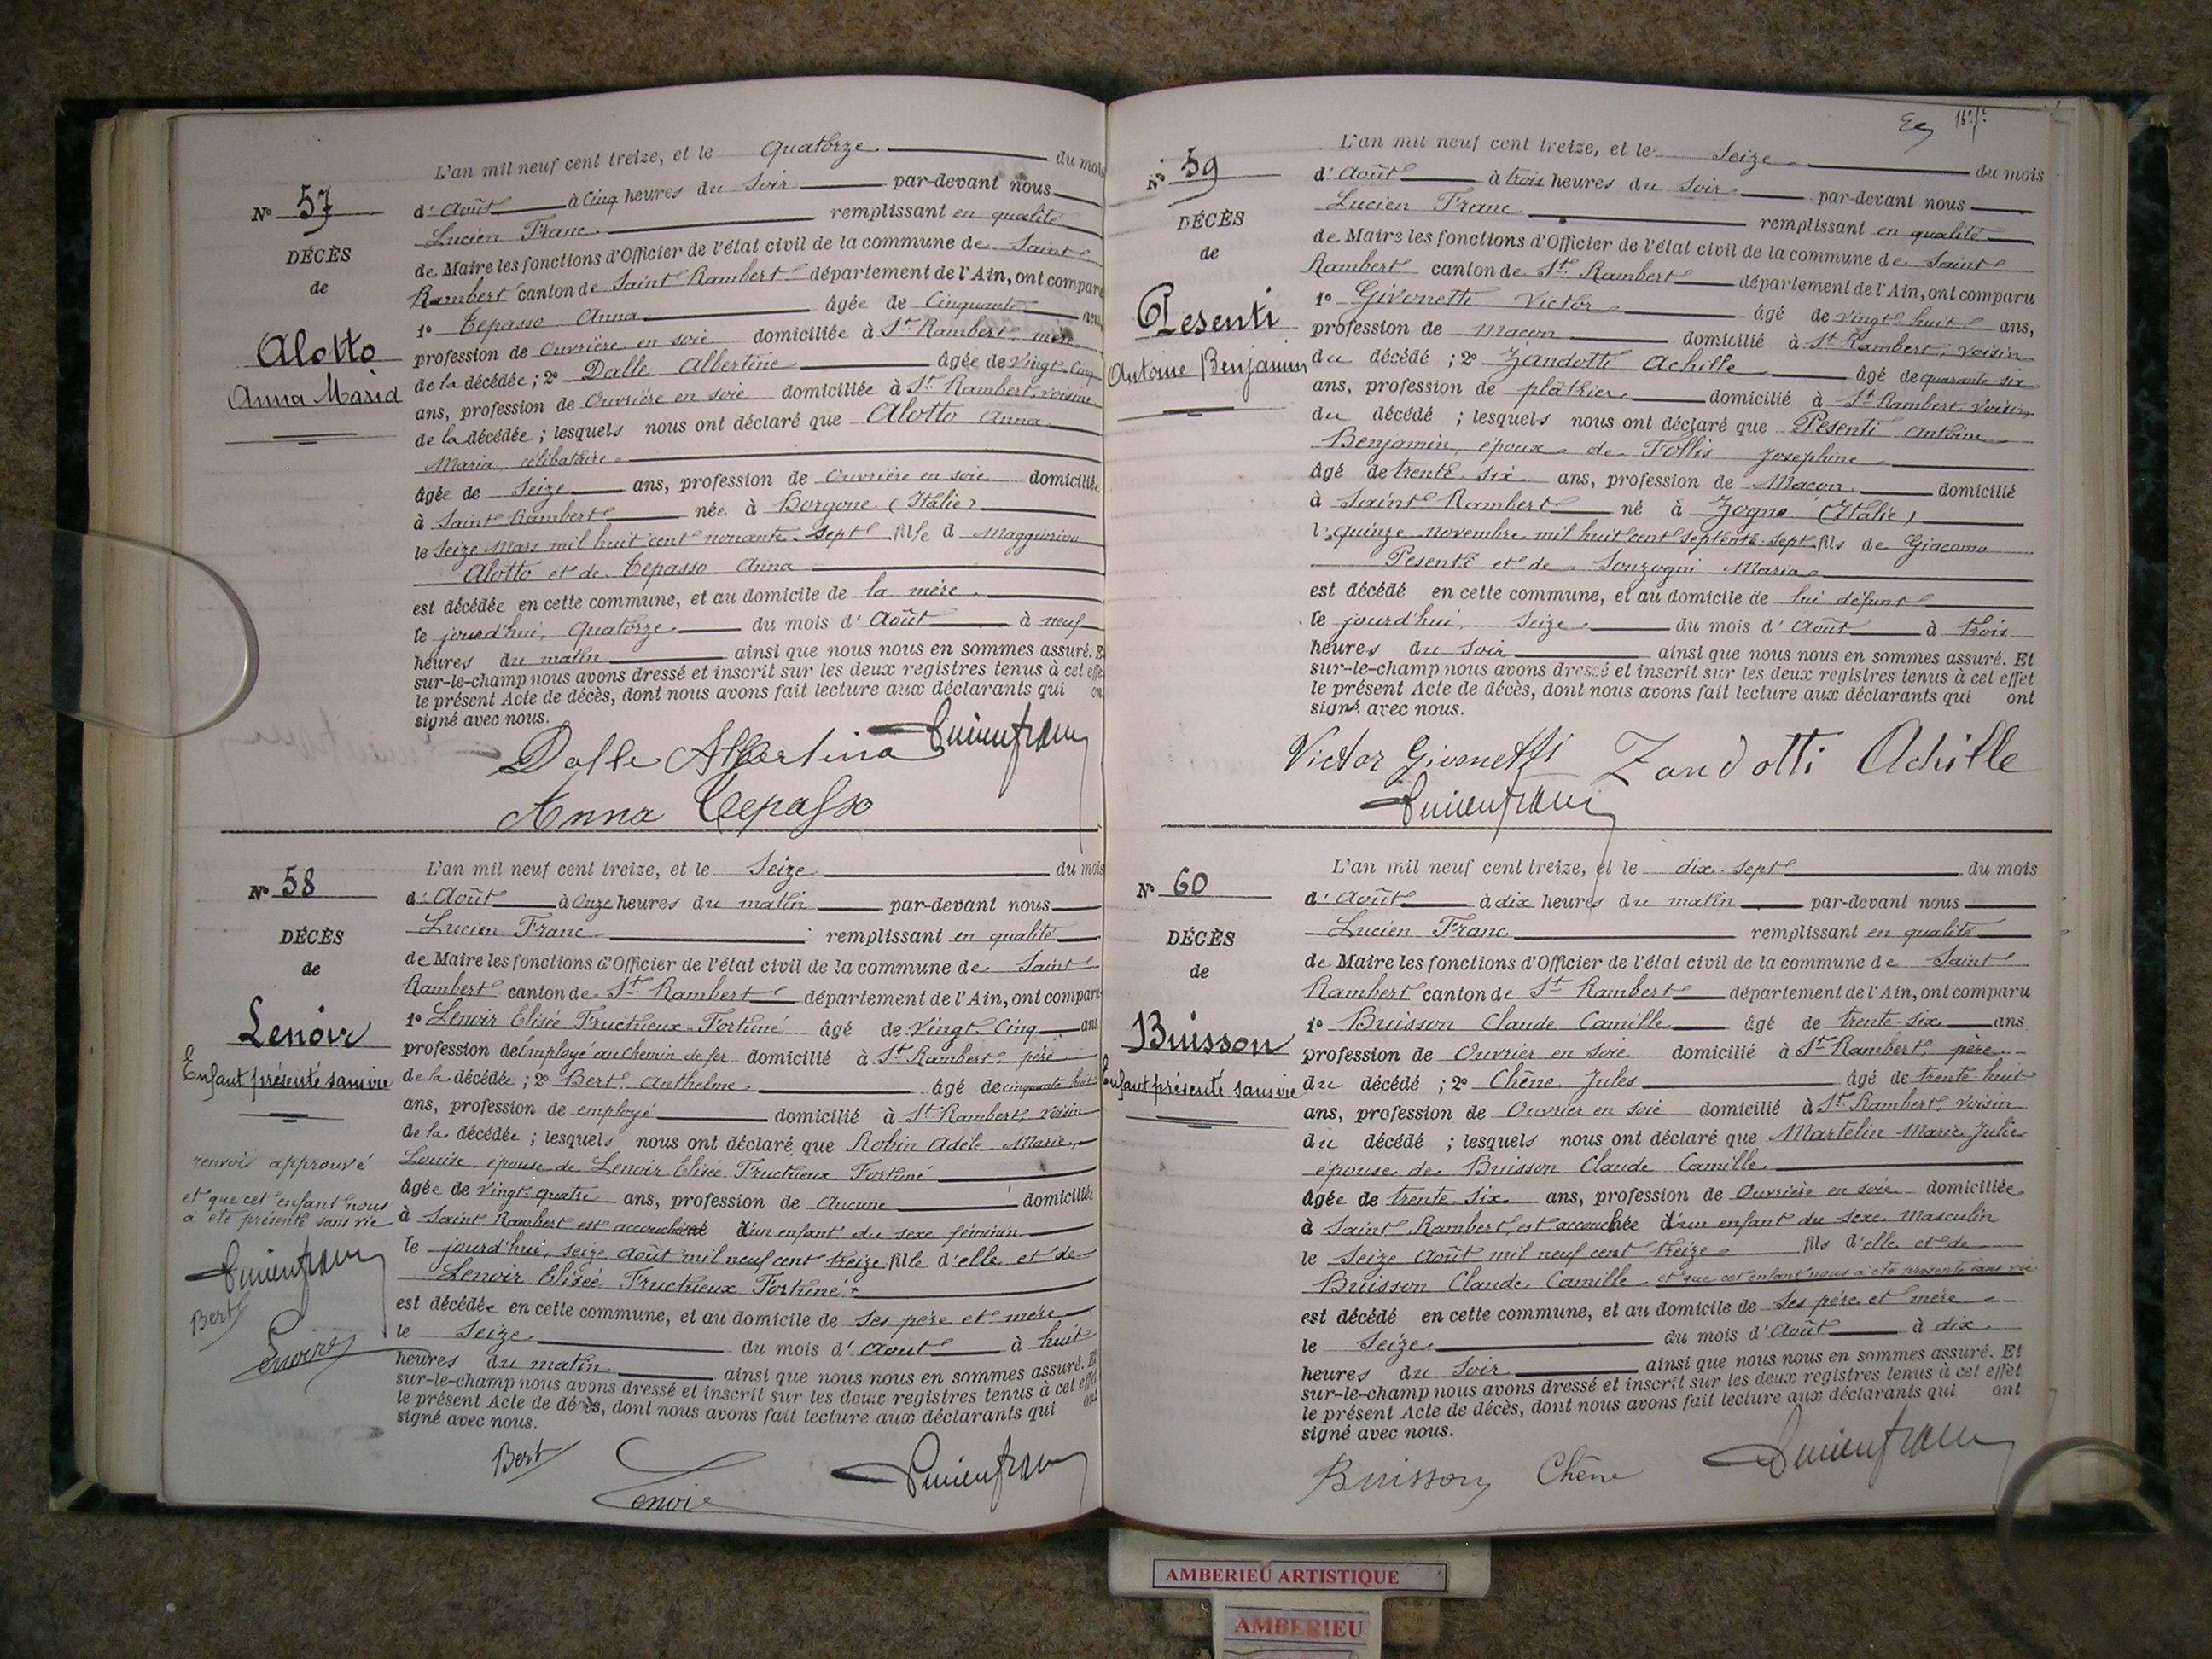 L'an mil neuf cent treize, et le Quatorze du mois
N° 57
d'Août à Cinq heures du Soir par-devant nous
Lucien Franc remplissant en qualité
DÉCÈS
de Maire les fonctions d'Officier de l'état civil de la commune de Saint
de
Rambert canton de Saint Rambert département de l'Ain, ont comparu
1° Tepasso Anna âgée de Cinquante ans
Alotto
profession de Ouvrière en soie domiciliée à St Rambert, mère
Anna Maria
de la décédée ; 2° Dalle Albertine âgée de Vingt-Cinq
ans, profession de Ouvrière en soie domiciliée à St Rambert, voisine
de la décédée ; lesquels nous ont déclaré que Alotto Anna
Maria, célibataire
âgée de Seize ans, profession de Ouvrière en soie domiciliée
à Saint Rambert née à Borgone (Italie)
le Seize Mars mil huit cent nonante-sept fille d Maggiorino
Alotto et de Tepasso Anna
est décédée en cette commune, et au domicile de la mère
le jourd'hui, Quatorze du mois d'Août à neuf
heures du matin ainsi que nous nous en sommes assuré. Et
sur-le-champ nous avons dressé et inscrit sur les deux registres tenus à cet effet
le présent Acte de décès, dont nous avons fait lecture aux déclarants qui ont
signé avec nous.
Dalle Albertina Lucien Franc
Anna Tepasso
L'an mil neuf cent treize, et le Seize du mois
N° 58
d'Août à Onze heures du matin par-devant nous
Lucien Franc remplissant en qualité
DÉCÈS
de Maire les fonctions d'Officier de l'état civil de la commune de Saint
de
Rambert canton de St Rambert département de l'Ain, ont comparu
Lenoir
1° Lenoir Elisée Fructueux Fortuné âgé de Vingt-Cinq ans
profession de Employé au Chemin de fer domicilié à St Rambert, père
Enfant présenté sans vie
de la décédée ; 2° Bert Anthelme âgé de cinquante huit
ans, profession de employé domicilié à St Rambert, voisin
de la décédée ; lesquels nous ont déclaré que Robin Adèle Marie
renvoi approuvé
Louise, épouse de Lenoir Elisée Fructueux Fortuné
et que cet enfant nous
a été présenté sans vie
âgée de Vingt-quatre ans, profession de Aucune domiciliée
à Saint Rambert est accouchée d'un enfant du sexe féminin
le jourd'hui, seize Août mil neuf cent treize fille d'elle et de
Lenoir Elisée Fructueux Fortuné +
Lucien Franc
Bert
Lenoir
est décédée en cette commune, et au domicile de Ses père et mère
le Seize du mois d'Août à huit
heures du matin ainsi que nous nous en sommes assuré. Et
sur-le-champ nous avons dressé et inscrit sur les deux registres tenus à cet effet
le présent Acte de décès, dont nous avons fait lecture aux déclarants qui ont
signé avec nous.
Bert Lenoir Lucien Franc
L'an mil neuf cent treize, et le Seize du mois
N° 59
d'Août à trois heures du Soir par-devant nous
Lucien Franc remplissant en qualité
DÉCÈS
de Maire les fonctions d'Officier de l'état civil de la commune de Saint
de
Rambert canton de St Rambert département de l'Ain, ont comparu
Pesenti
1° Givonetti Victor âgé de Vingt-huit ans,
profession de Maçon domicilié à St Rambert, Voisin
Antoine Benjamin
du décédé ; 2° Zandotti Achille âgé de quarante-six
ans, profession de plâtrier domicilié à St Rambert, Voisin
du décédé ; lesquels nous ont déclaré que Pesenti Antoine
Benjamin, époux de Follis Josephine
âgé de trente-six ans, profession de Maçon domicilié
à Saint Rambert né à Zogno (Italie)
le quinze Novembre mil huit cent septente-sept fils de Giacomo
Pesenti et de Sonzogni Maria
est décédé en cette commune, et au domicile de lui défunt
le jourd'hui, Seize du mois d'Août à trois
heures du Soir ainsi que nous nous en sommes assuré. Et
sur-le-champ nous avons dressé et inscrit sur les deux registres tenus à cet effet
le présent Acte de décès, dont nous avons fait lecture aux déclarants qui ont
signé avec nous.
Victor Givonetti Zandotti Achille
Lucien Franc
L'an mil neuf cent treize, et le dix-sept du mois
N° 60
d'Août à dix heures du matin par-devant nous
Lucien Franc remplissant en qualité
DÉCÈS
de Maire les fonctions d'Officier de l'état civil de la commune de Saint
de
Rambert canton de St Rambert département de l'Ain, ont comparu
Buisson
1° Buisson Claude Camille âgé de trente-six ans
profession de Ouvrier en soie domicilié à St Rambert, père
Enfant présenté sans vie
du décédé ; 2° Chêne Jules âgé de trente-huit
ans, profession de Ouvrier en soie domicilié à St Rambert, Voisin
du décédé ; lesquels nous ont déclaré que Martelin Marie Julie
épouse de Buisson Claude Camille
âgée de trente-six ans, profession de Ouvrière en soie domiciliée
à Saint Rambert, est accouchée d'un enfant du sexe Masculin
le Seize Août mil neuf cent treize fils d'elle et de
Buisson Claude Camille et que cet enfant nous a été présenté sans vie
est décédé en cette commune, et au domicile de Ses père et mère
le Seize du mois d'Août à dix
heures du Soir ainsi que nous nous en sommes assuré. Et
sur-le-champ nous avons dressé et inscrit sur les deux registres tenus à cet effet
le présent Acte de décès, dont nous avons fait lecture aux déclarants qui ont
signé avec nous.
Buisson Chêne Lucien Franc
AMBERIEU ARTISTIQUE
AMBERIEU